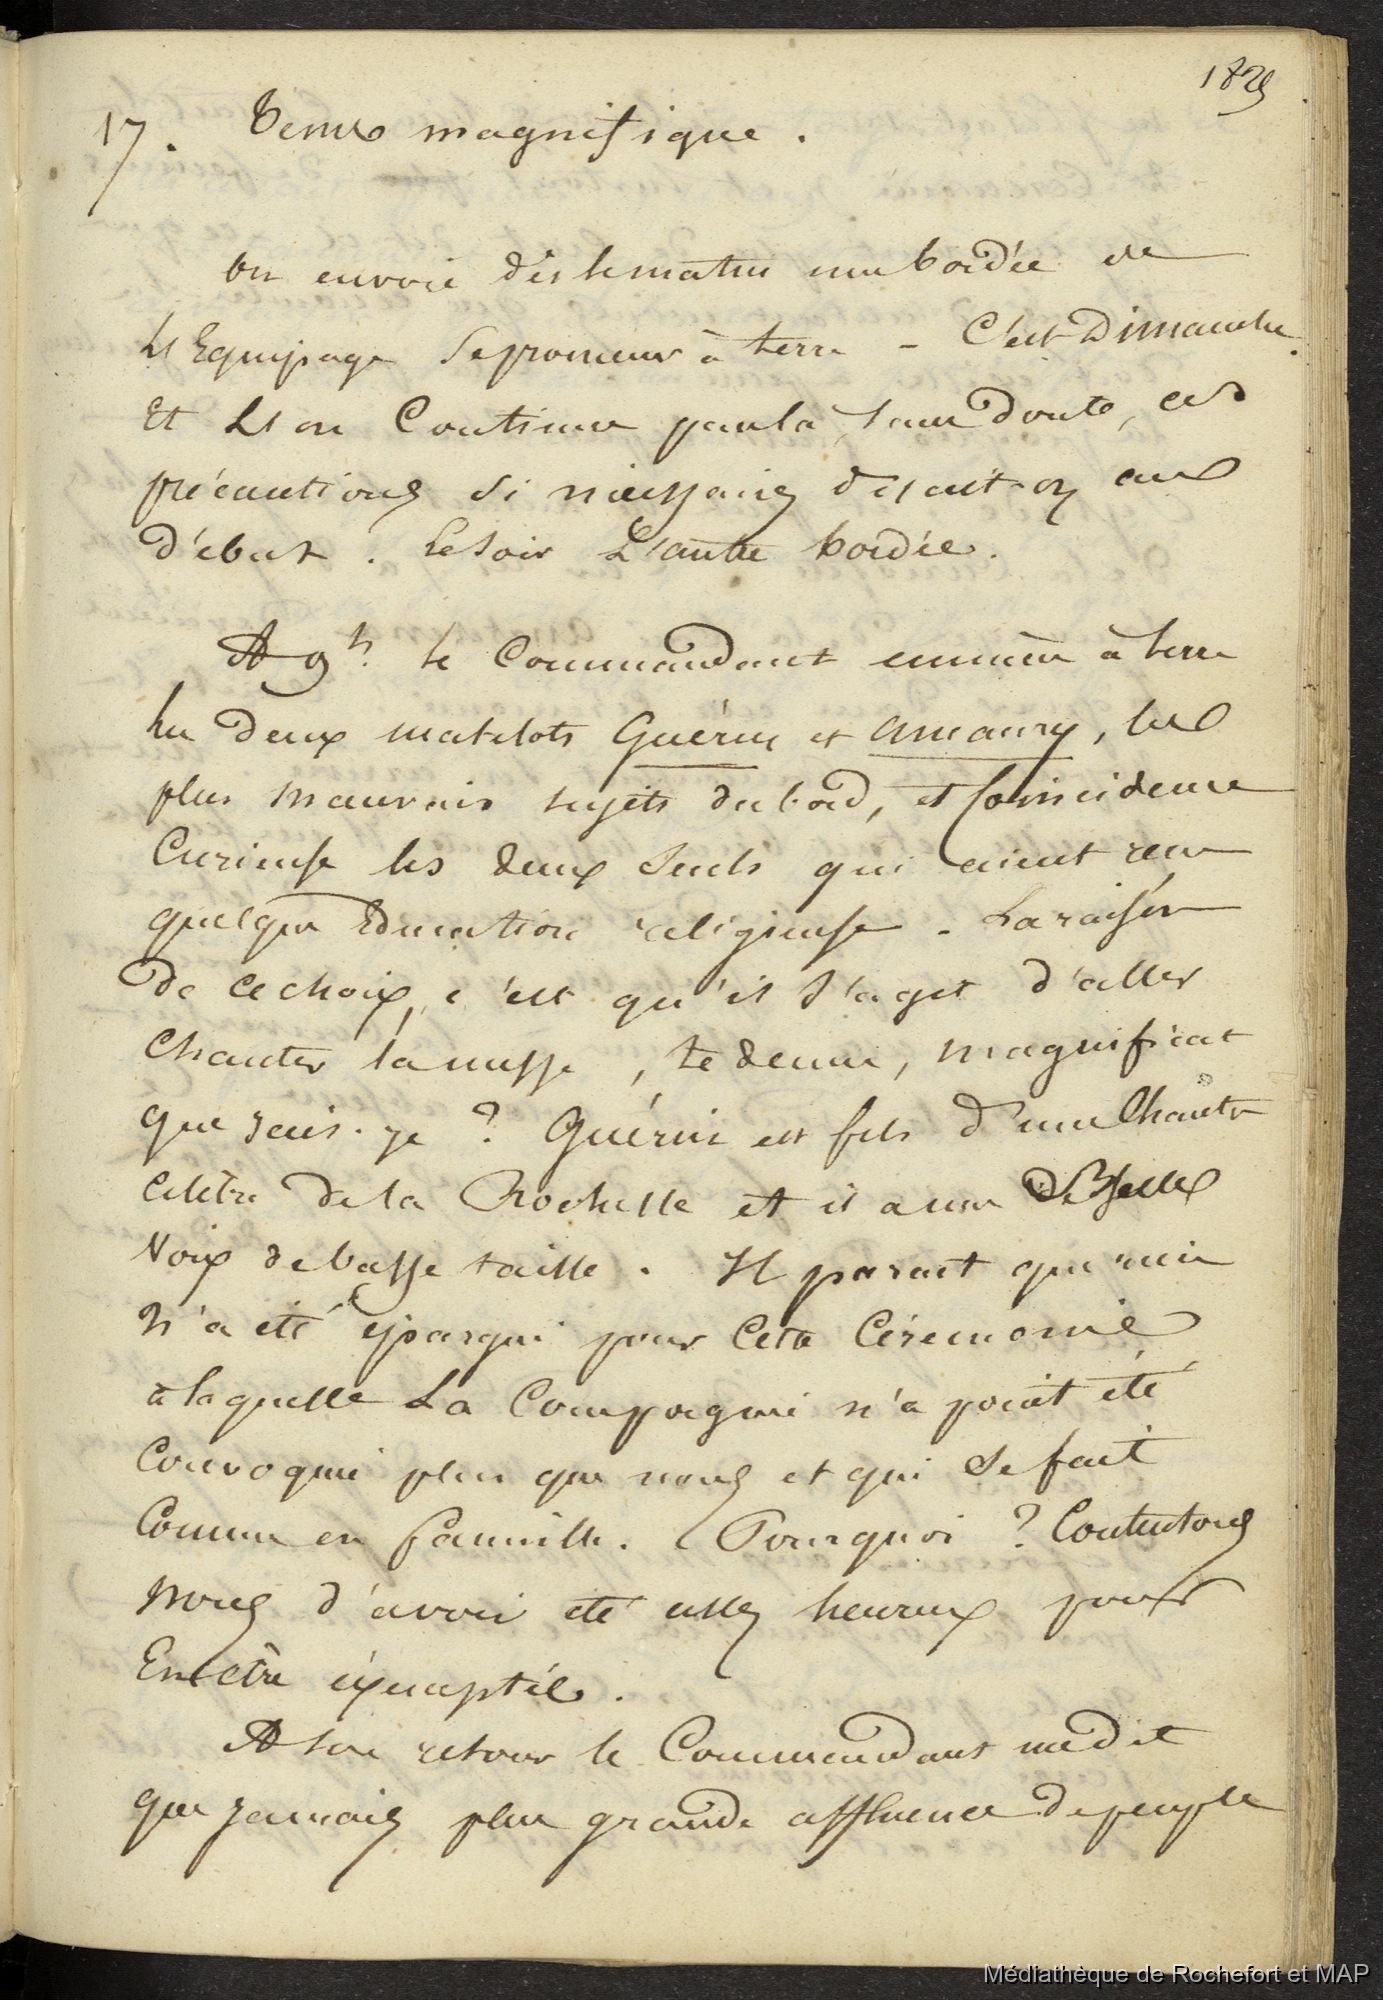 1829
17. Tems magnifique.
On envoie dès le matin une bordée de
l'Equipage se promener à terre - C'est Dimanche.
Et l'on continue par là, sans doute, ces
précautions si nécessaires disait-on au
début. Le soir l'autre bordée.
A 9h. le Commandant emmène à terre
les deux matelots Guérin et Amaury, les
plus mauvais sujets du bord, et Coincidence
Curieuse les deux seuls qui aient reçu
quelque Education religieuse. La raison
de ce choix, c'est qu'il s'agit d'aller
Chanter la messe, te deum, magnificat
que sais-je ? Guérin est fils d'un Chantre
célèbre de la Rochelle et il a une belle
Voix de basse taille. Il parait que rien
N'a été épargné pour cette Cérémonie
à laquelle la Compagnie n'a point été
Convoquée plus que nous et qui se fait
Comme en famille. Pourquoi ? Contentons
Nous d'avoir été assez heureux pour
En être éxemptés.
A son retour le Commandant me dit
que jamais plus grande affluence de peuple
Médiathèque de Rochefort et MAP